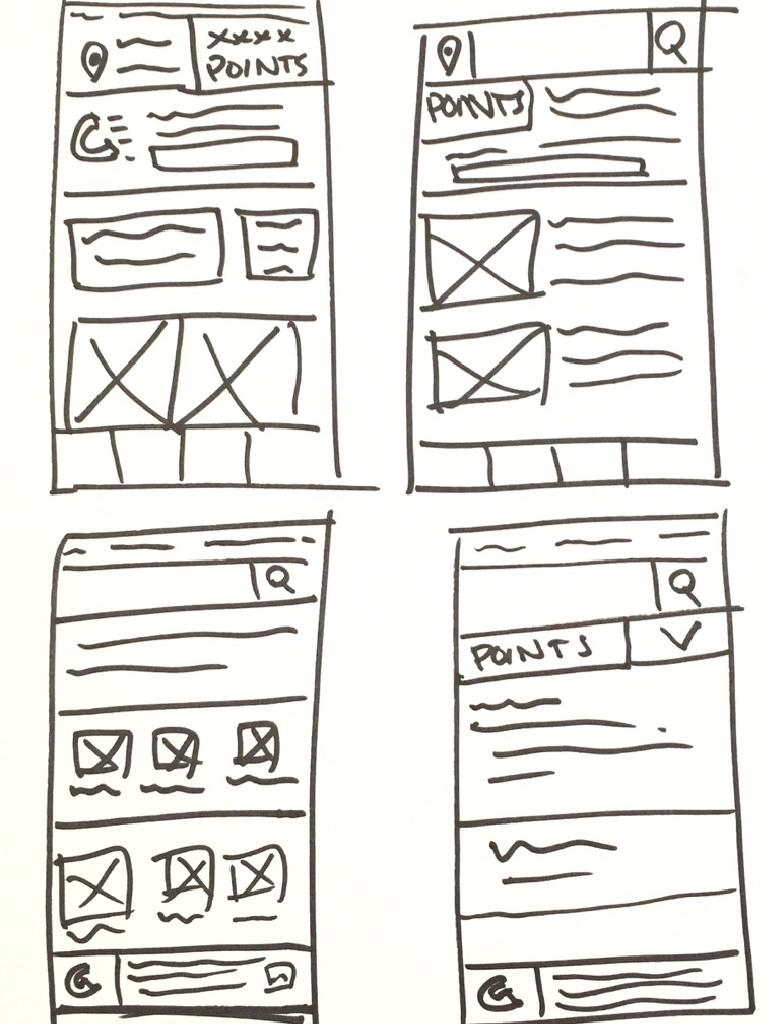 xxxx
POINTS
POINTS
POINTS